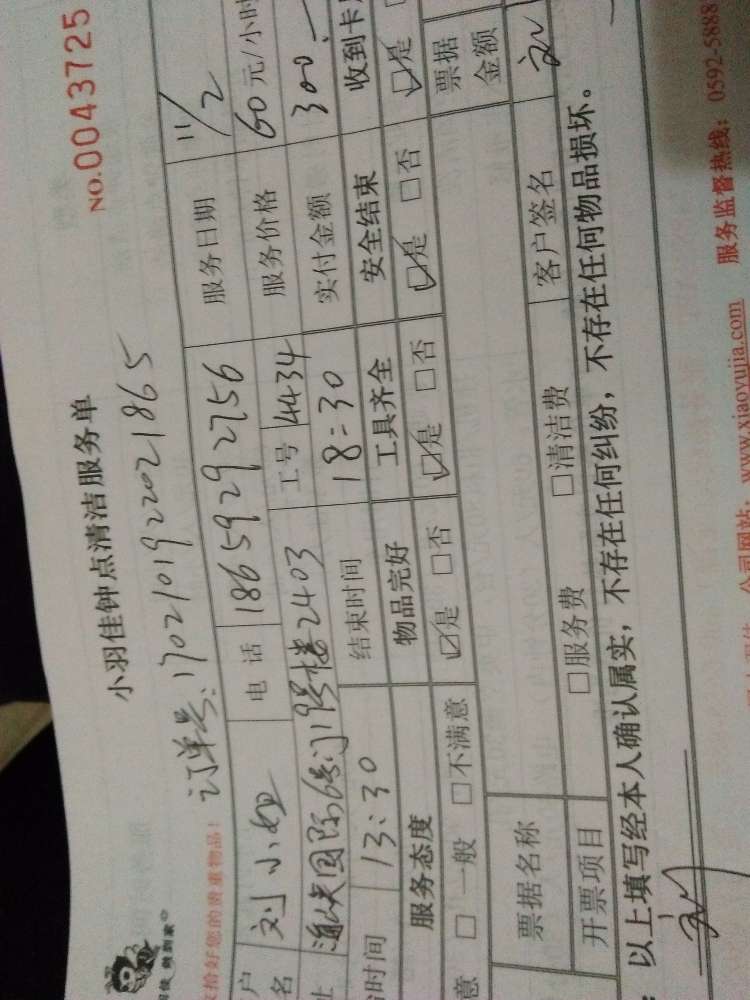 小羽佳钟点清洁服务单
NO.0043725
收拾好您的贵重物品！
订单号：1702101922021865
户名 刘小姐 电话 18659292756 服务日期 11/2
址 国际 19号楼2403 工号 4434 服务价格 60元/小时
始时间 13:30 结束时间 18:30 实付金额 300.-
服务态度 物品完好 工具齐全 安全结束 收到卡
意 □一般 □不满意 ☑是 □否 ☑是 □否 ☑是 □否 ☑是
票据名称 票据金额
开票项目 □服务费 □清洁费 客户签名
：以上填写经本人确认属实，不存在任何纠纷，不存在任何物品损坏。
公司网站：www.xiaoyujia.com 服务监督热线：0592-5888